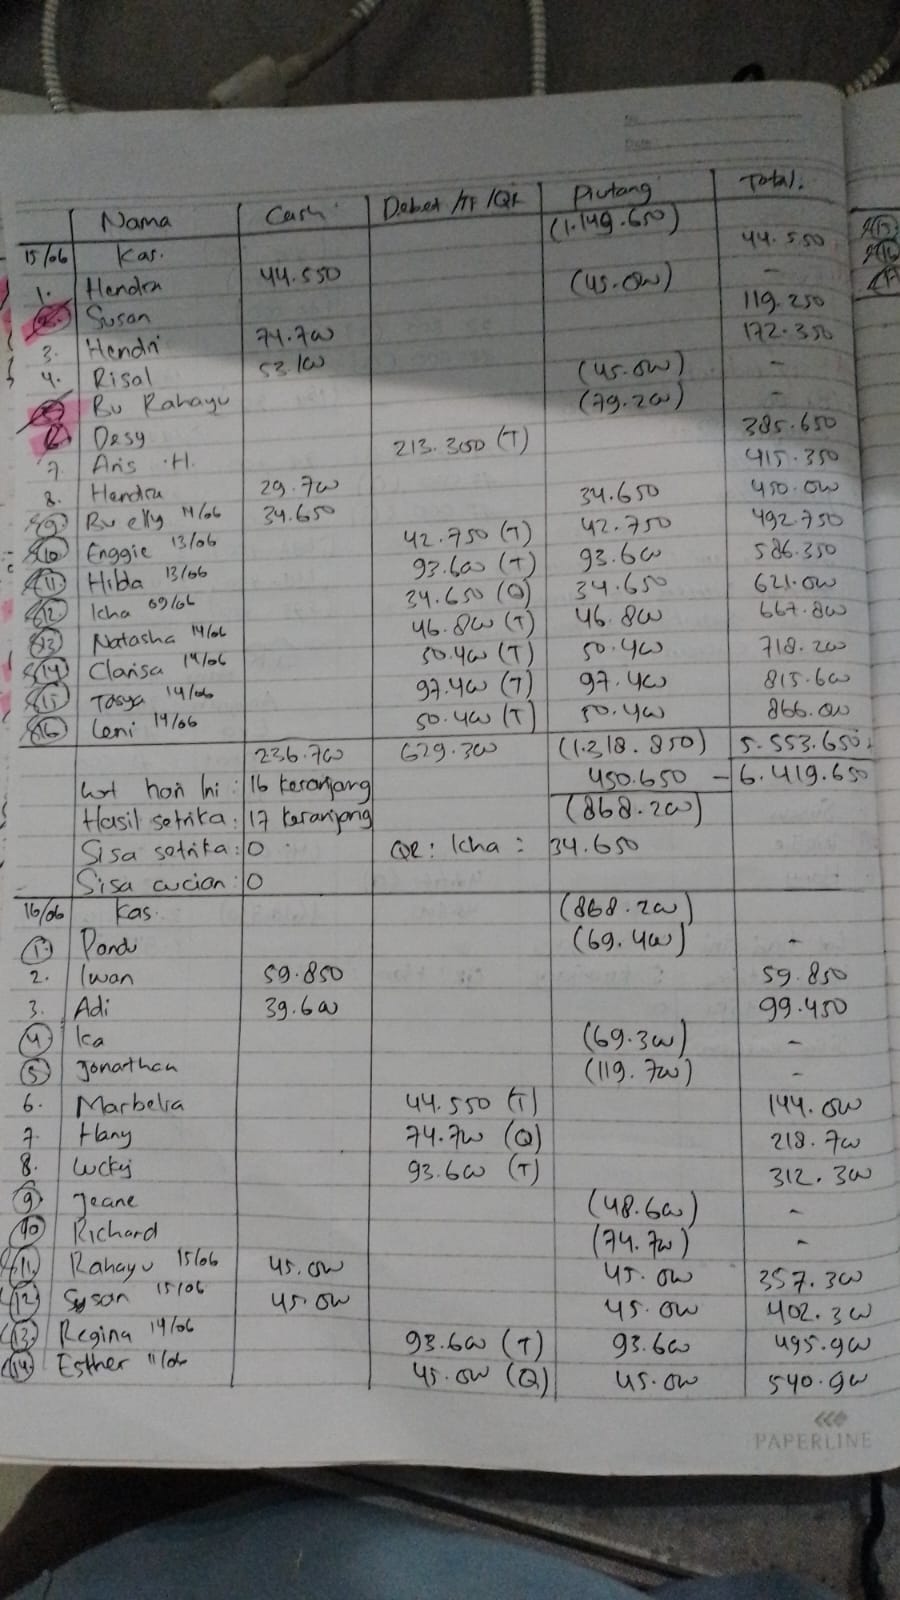 No.
Date:
Nama Cash Debet /TF /QR Piutang Total.
15/06 Kas. (1.149.650)
1. Hendra 44.550 44.550
2. Susan (45.000) -
3. Hendri 74.700 119.250
4. Risal 53.100 172.350
5. Bu Rahayu (45.000) -
6. Desy (79.200) -
7. Aris .H. 213.300 (T) 385.650
8. Hendra 29.700 415.350
9. Bu elly 14/06 34.650 34.650 450.000
10. Enggie 13/06 42.750 (T) 42.750 492.750
11. Hilda 13/06 93.600 (T) 93.600 586.350
12. Icha 09/06 34.650 (Q) 34.650 621.000
13. Natasha 14/06 46.800 (T) 46.800 667.800
14. Clarisa 14/06 50.400 (T) 50.400 718.200
15. Tasya 14/06 97.400 (T) 97.400 815.600
16. Leni 14/06 50.400 (T) 50.400 866.000
236.700 629.300 (1.318.850) 5.553.650
hari Ini : 16 keranjang 450.650 - 6.419.650
Hasil setrika : 17 keranjang (868.200)
Sisa setrika : 0 QR : Icha : 34.650
Sisa cucian : 0
16/06 Kas. (868.200)
1. Pandu (69.400) -
2. Iwan 59.850 59.850
3. Adi 39.600 99.450
4. Ika (69.300) -
5. Jonarthan (119.700) -
6. Marbella 44.550 (T) 144.000
7. Hany 74.700 (Q) 218.700
8. Lucky 93.600 (T) 312.300
9. Jeane (48.600) -
10. Richard (74.700) -
11. Rahayu 15/06 45.000 45.000 357.300
12. Susan 15/06 45.000 45.000 402.300
13. Regina 14/06 93.600 (T) 93.600 495.900
14. Esther 11/06 45.000 (Q) 45.000 540.900
PAPERLINE